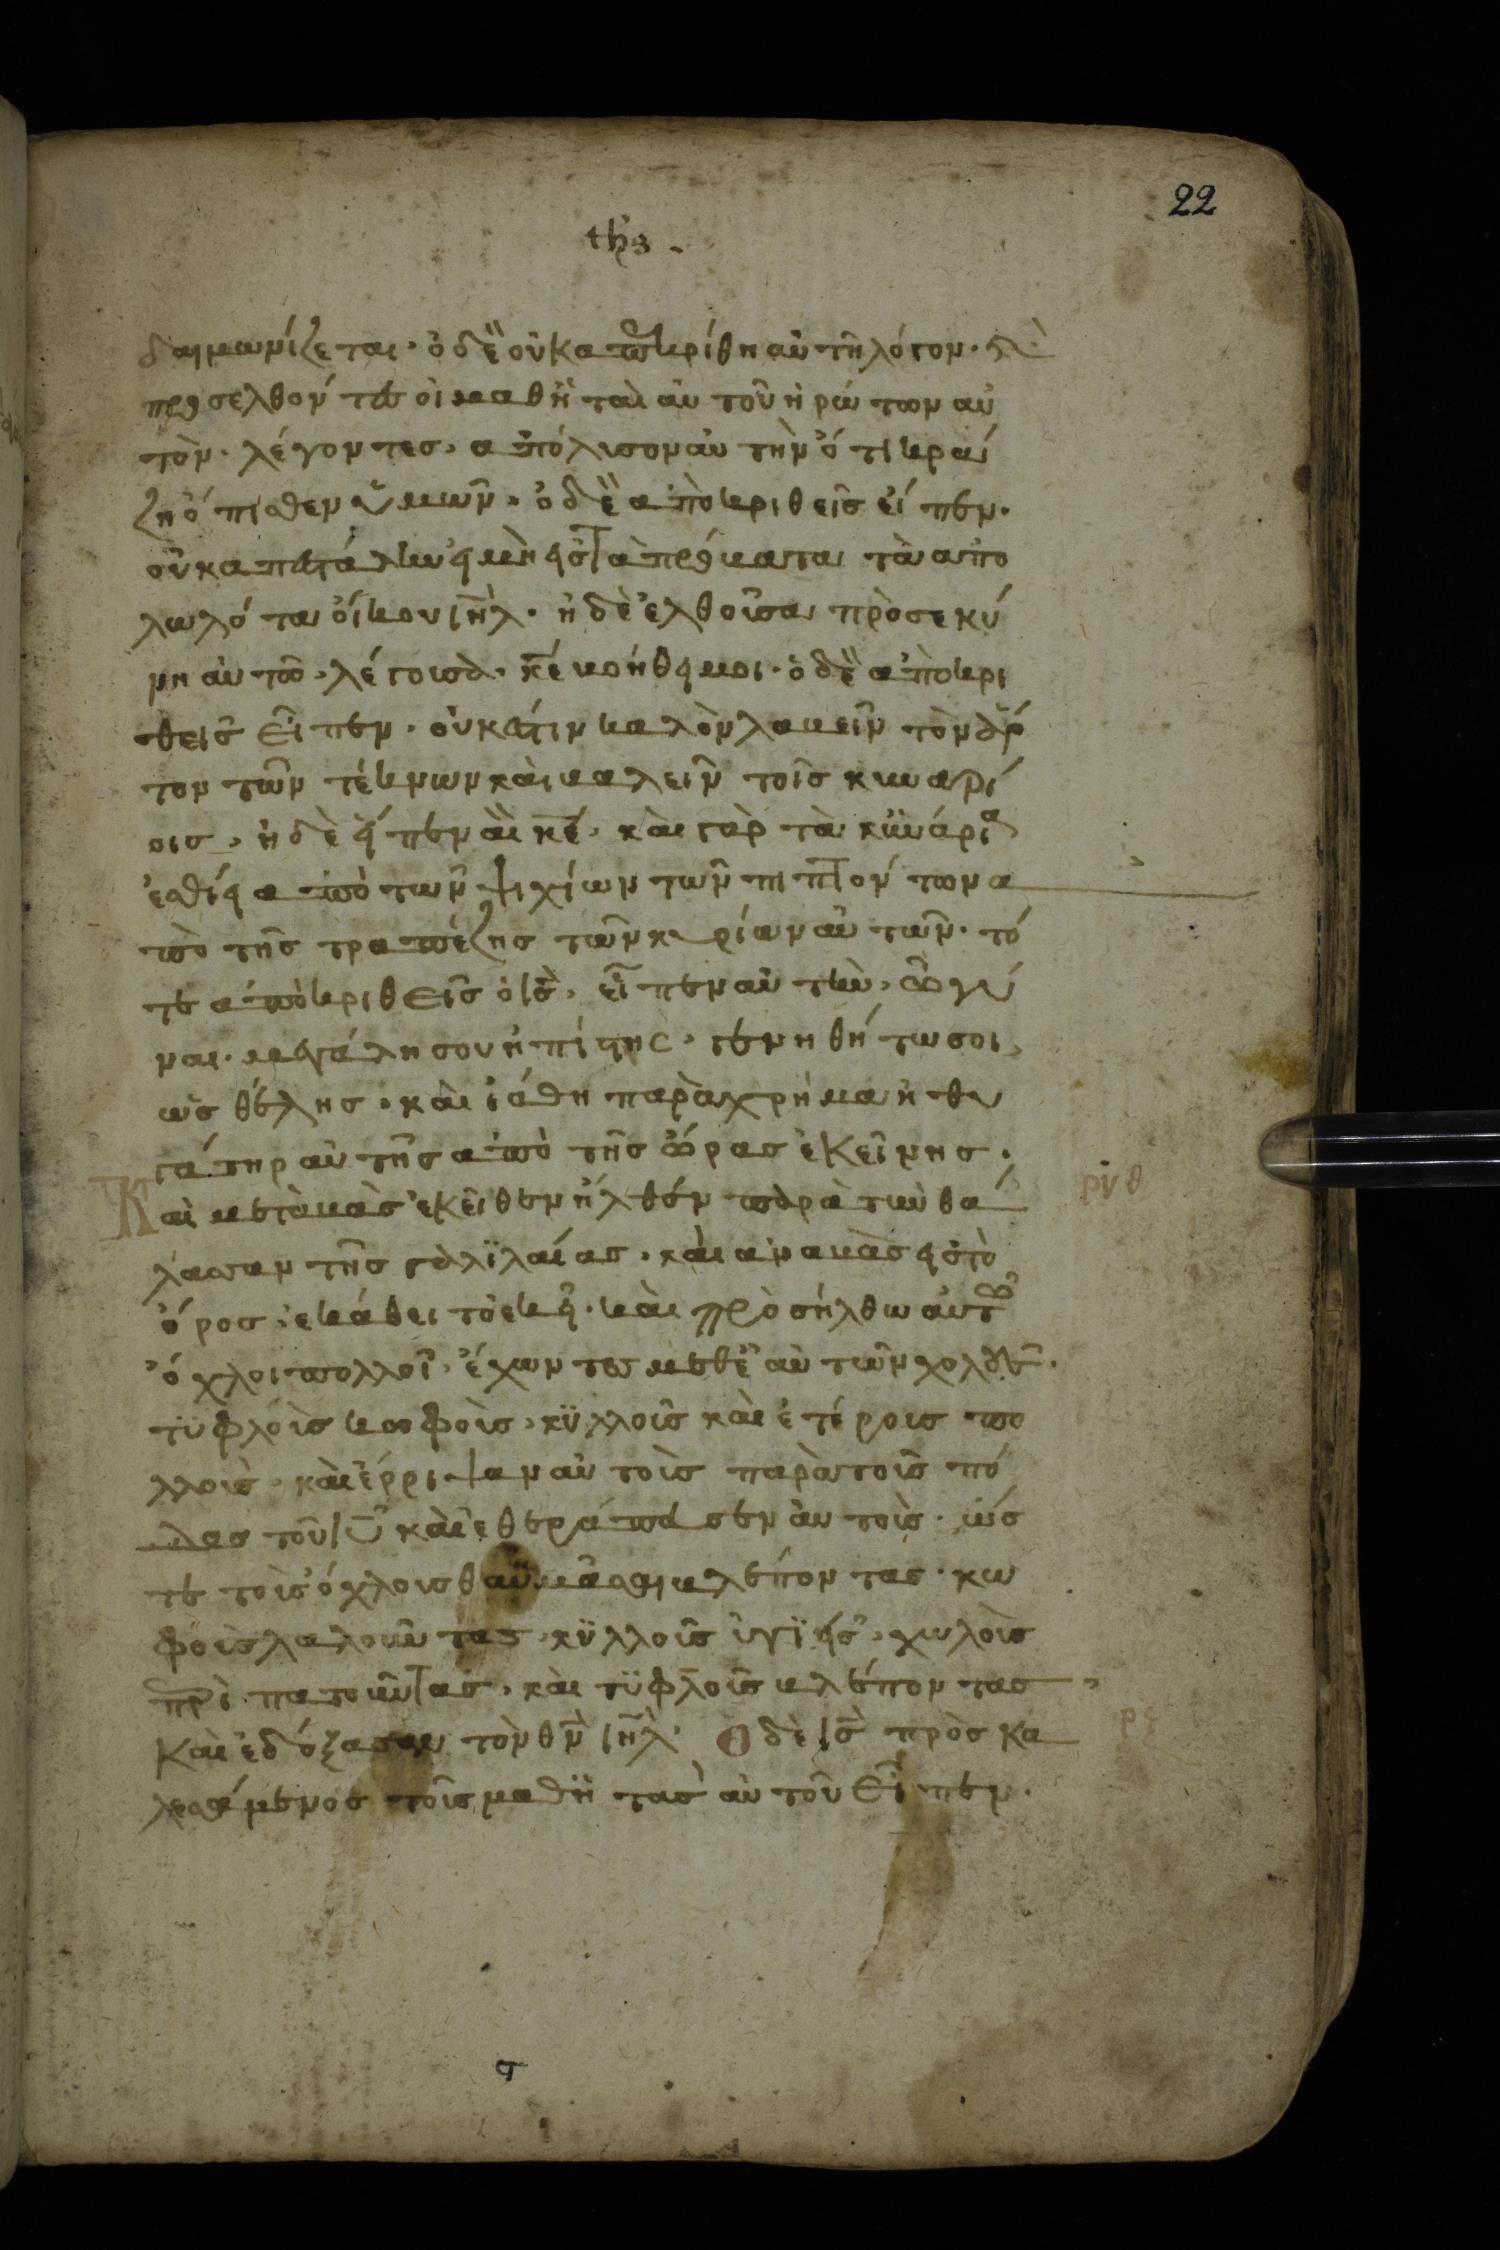 22
δαιμωνίζεται· ὁ δὲ οὐκ απεκρίθη αὐτῆ λόγον· κὲ
προσελθόντες οἱ μαθηταὶ αυτοῦ ἠρώτων αὐ
τὸν· λέγοντες, απόλισον αὐτὴν ὅτι κράι
ζη όπιθεν ὑμων· ὁ δὲ αποκριθεῖς εἶπεν·
οὐκ απεστάλην εἰ μὴ εἰς τὰ πρόβατα τὰ απο
λωλότα οἴκου ιῆλ· ἡ δὲ ἐλθοῦσα προσεκύ
νη αὐτῶ, λέγουσα, κε βοήθει μοι· ὁ δὲ αποκρι
θεις εἶπεν· οὐκ έστιν καλὸν λαβεῖν τὸν ἄρ
τον τῶν τέκνων καὶ βαλεῖν τοῖς κυναρί
οις, ἡ δὲ εἶπεν ναὶ κε, καὶ γὰρ τὰ κϋνάρια
ἐσθίει απὸ τῶν ψιχίων τῶν πιπτόντων α
πὸ τῆς τραπέζης τῶν κυρίων αὐτῶν· τό
τε αποκριθεῖς ὁ ις, εἶπεν αὐτὴ, ὦ γύ
ναι· μεγάλη σου ἡ πίστης, γενηθήτω σοι
ὡς θέλης, καὶ ἰάθη παρὰχρήμα ἡ θυ
γάτηρ αὐτῆς απὸ τῆς ὥρας ἐκείνης·
Και μεταβὰς ἐκεῖθεν ἦλθεν παρὰ τὴν θά
λασσαν τῆς γαλϊλαίας, καὶ αναβὰς εἰς τὸ
όρος ἐκάθειτο ἐκεῖ· καὶ προσῆλθων αὐτῶ
όχλοι πολλοῖ, έχωντες μεθ' εαὐτῶν χολοὺς·
τϋφλοὶς κωφοὶς, κϋλλοῖς καὶ ἑτέροις πο
λλοὶς· καὶ έρριψαν αὐτοὶς παρὰ τοῖς πό
δας τοῦ ιυ καὶ ἐθεράπευσεν αὐτοὶς· ὡς
τε τοὶς όχλοις θαυμάσαι βλέποντας· κω
φοὶς λαλοῦντας, κϋλλοῖς ὑγϊείς, χωλοὶς
περιπατοῦντας, και τϋφλοῖς βλέποντας
ρνθ
καὶ ἐδόξασαν τὸν θν ιηλ· Ο δὲ ις προσκα
ρξ
λεσάμενος τοῖς μαθητὰς αὐτοῦ εἶπεν·